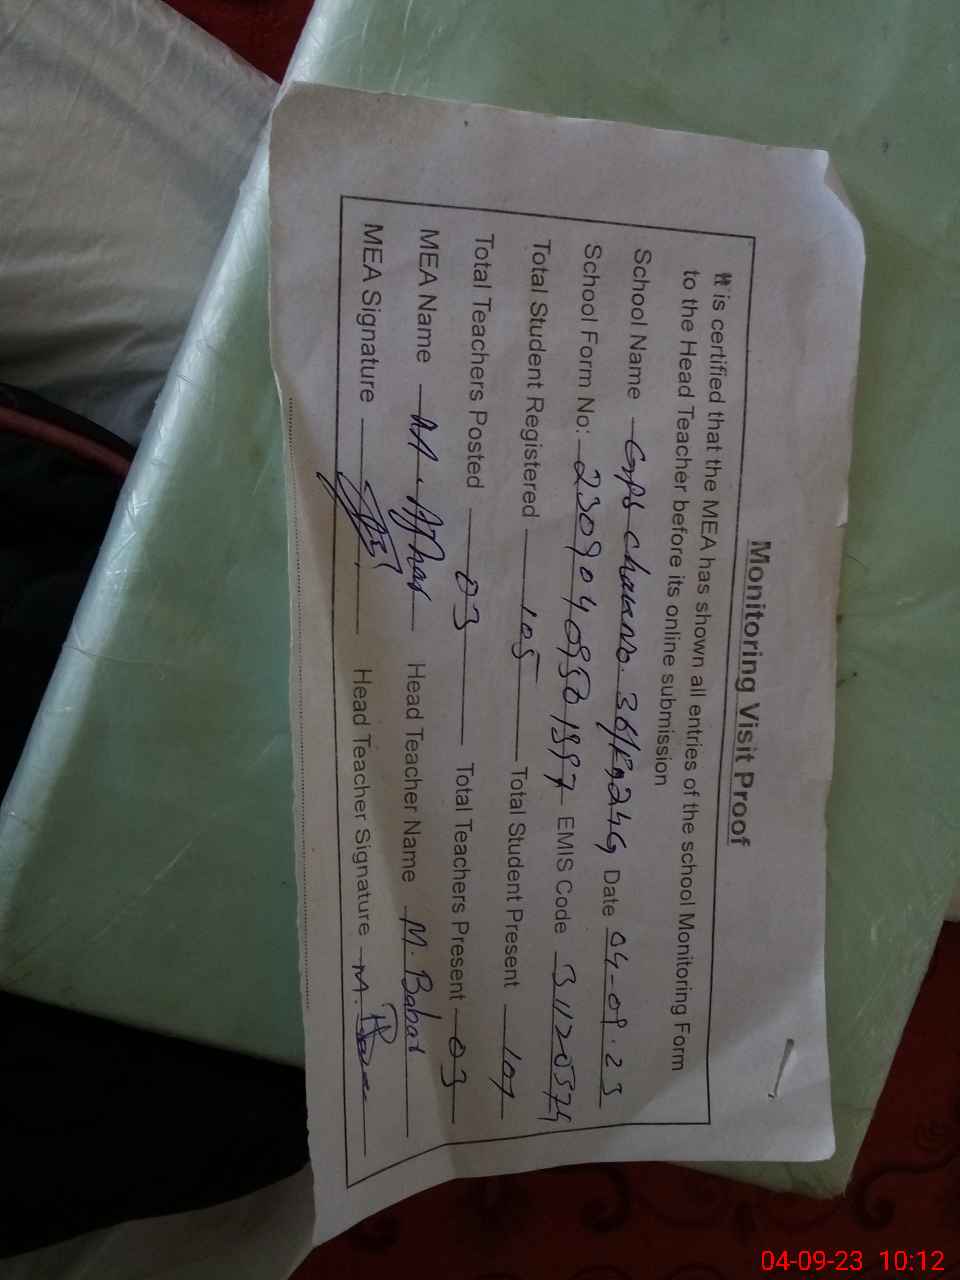 Monitoring Visit Proof
It is certified that the MEA has shown all entries of the school Monitoring Form
to the Head Teacher before its online submission
School Name Gps Date 04-09.23
School Form No: EMIS Code
Total Student Registered 105 Total Student Present 101
Total Teachers Posted 03 Total Teachers Present 03
MEA Name Head Teacher Name M. Babar
MEA Signature Head Teacher Signature
04-09-23 10:12